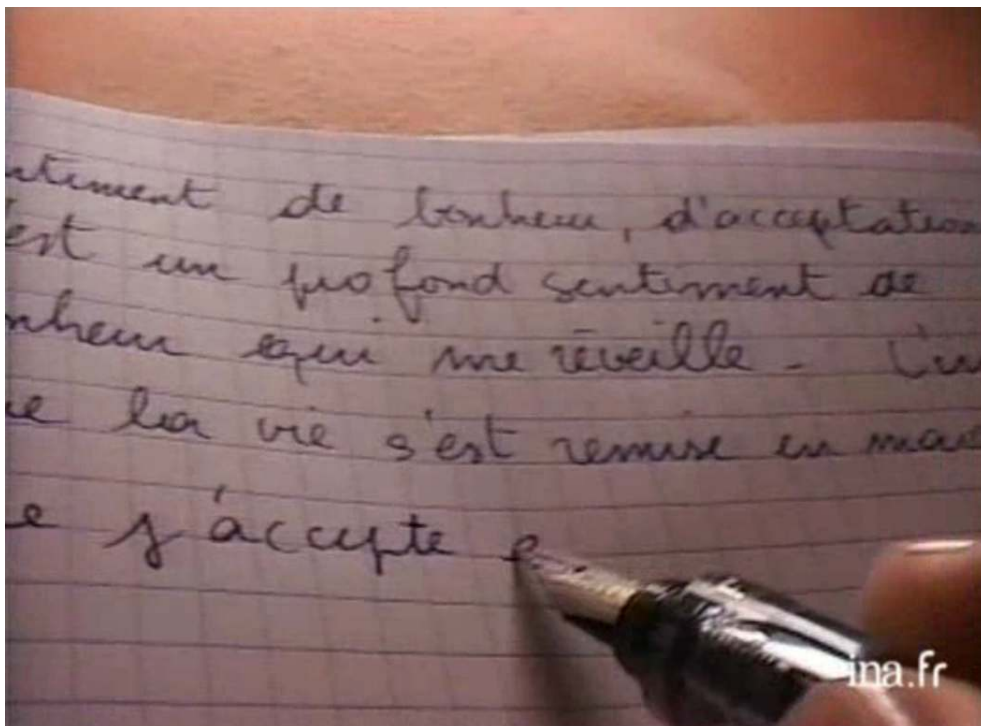 ntiment de bonheur, d'acceptation
'est un profond sentiment de
nheur qui me réveille -
ue la vie s'est remise en
e j'accepte e
ina.fr